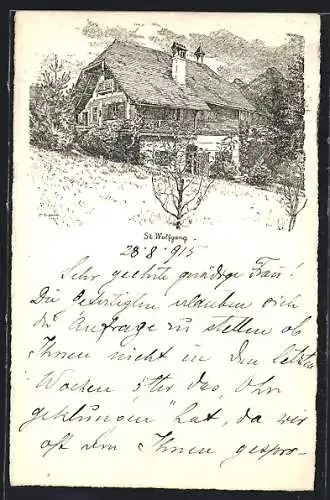 St. Wolfgang
28.8.915
Sehr geehrte gnädige Frau!
Die Gefertigten erlauben sich
die Anfrage zu stellen ob
Ihnen nicht in den letzten
Wochen öfter das "Ohr
geklungen" hat, da wir
oft von Ihnen gespro-